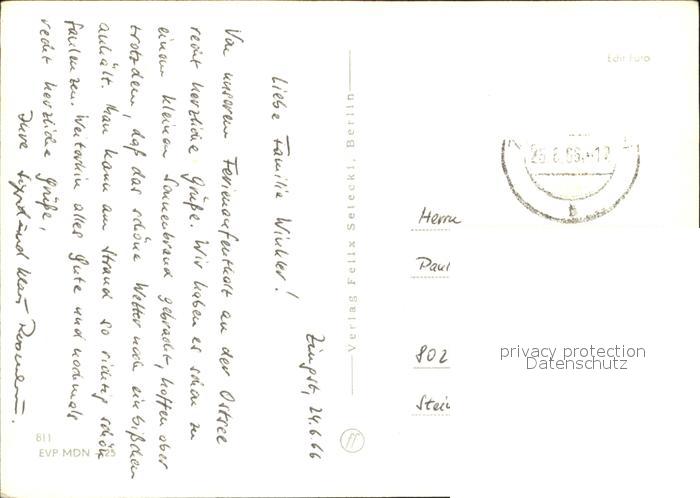 Zingst, 24.6.66
Liebe Familie Winkler!
Von unserem Ferienaufenthalt an der Ostsee
recht herzliche Grüße. Wir haben es schon zu
einem kleinen Sonnenbrand gebracht, hoffen aber
trotzdem, daß das schöne Wetter noch ein bißchen
anhält. Man kann am Strand so richtig schön
faulenzen. Weiterhin alles Gute und nochmals
recht herzliche Grüße,
Ihre und Klaus
Verlag Felix Setecki, Berlin
Edit Furo
25.6.66.-17
B
Herrn
Paul
802
Stein
privacy protection
Datenschutz
811
EVP MDN -.25
ff